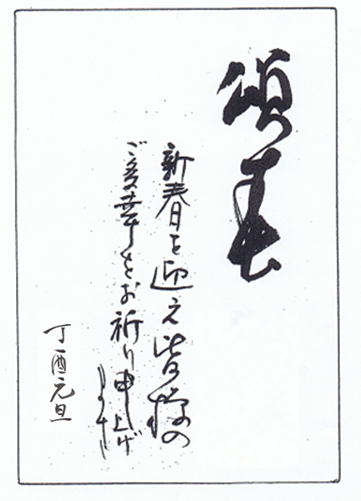 頌春
新春を迎え皆様の
ご多幸をお祈り申し上げます
丁酉元旦